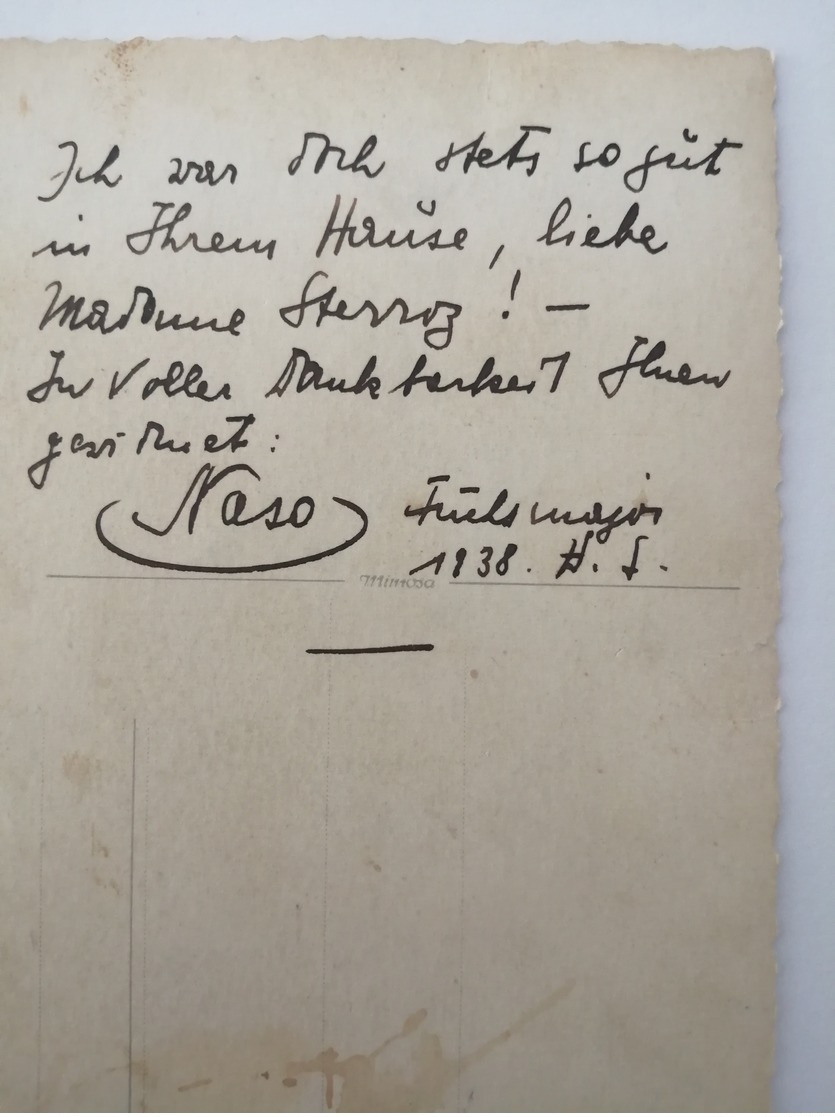 Ich war doch stets so gut
in Ihrem Hause, liebe
Madame Sterroz! —
In voller Dankbarkeit Ihnen
gewidmet:
Naso
1938. H. S.
Mimosa